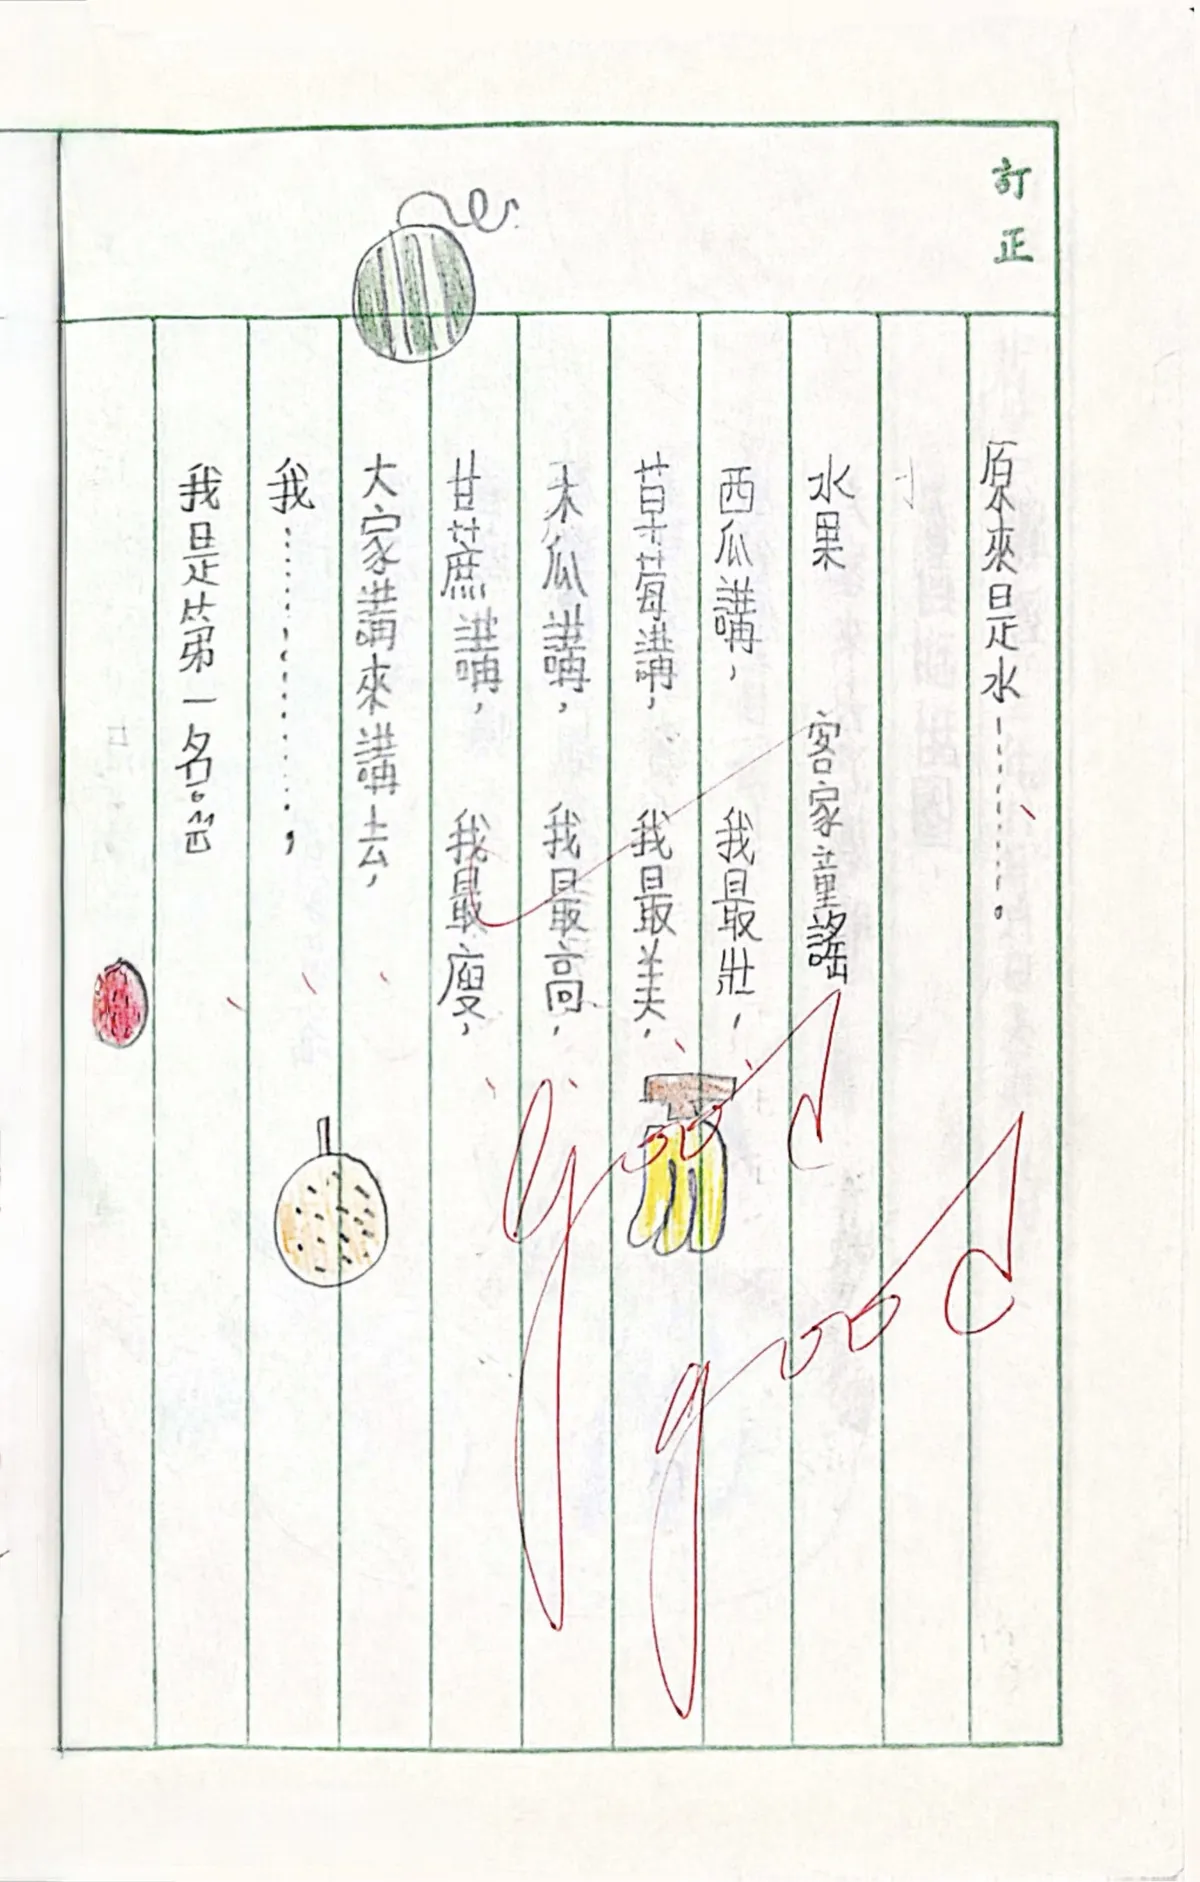 訂正
原來是水………。
水果 客家童謠
西瓜講, 我最壯,
草莓講, 我最美,
木瓜講, 我最高,
甘蔗講, 我最瘦,
大家講來講去,
我…………,
我是第一名。
good
good